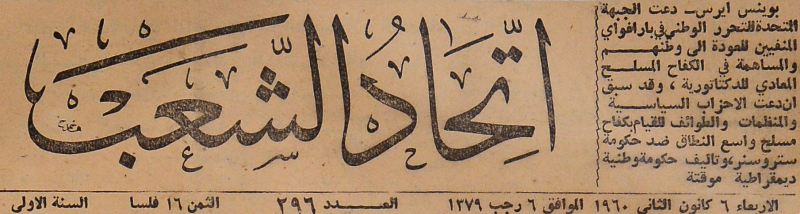 بوينس ايرس ـ دعت الجبهة
المتحدة للتحرر الوطني في بارافواي
المنفيين للعودة الى وطنهم
والمساهمة في الكفاح المسلح
المعادي للدكتاتورية ، وقد سبق
ان دعت الاحزاب السياسية
والمنظمات والطوائف للقيام بكفاح
مسلح واسع النطاق ضد حكومة
ستروسنر، وتاليف حكومة وطنية
ديمقراطية موقتة
اتحاد الشعب
الاربعاء ٦ كانون الثاني ١٩٦٠ الموافق ٦ رجب ١٣٧٩ العدد ٢٩٦ الثمن ١٦ فلسا السنة الاولى